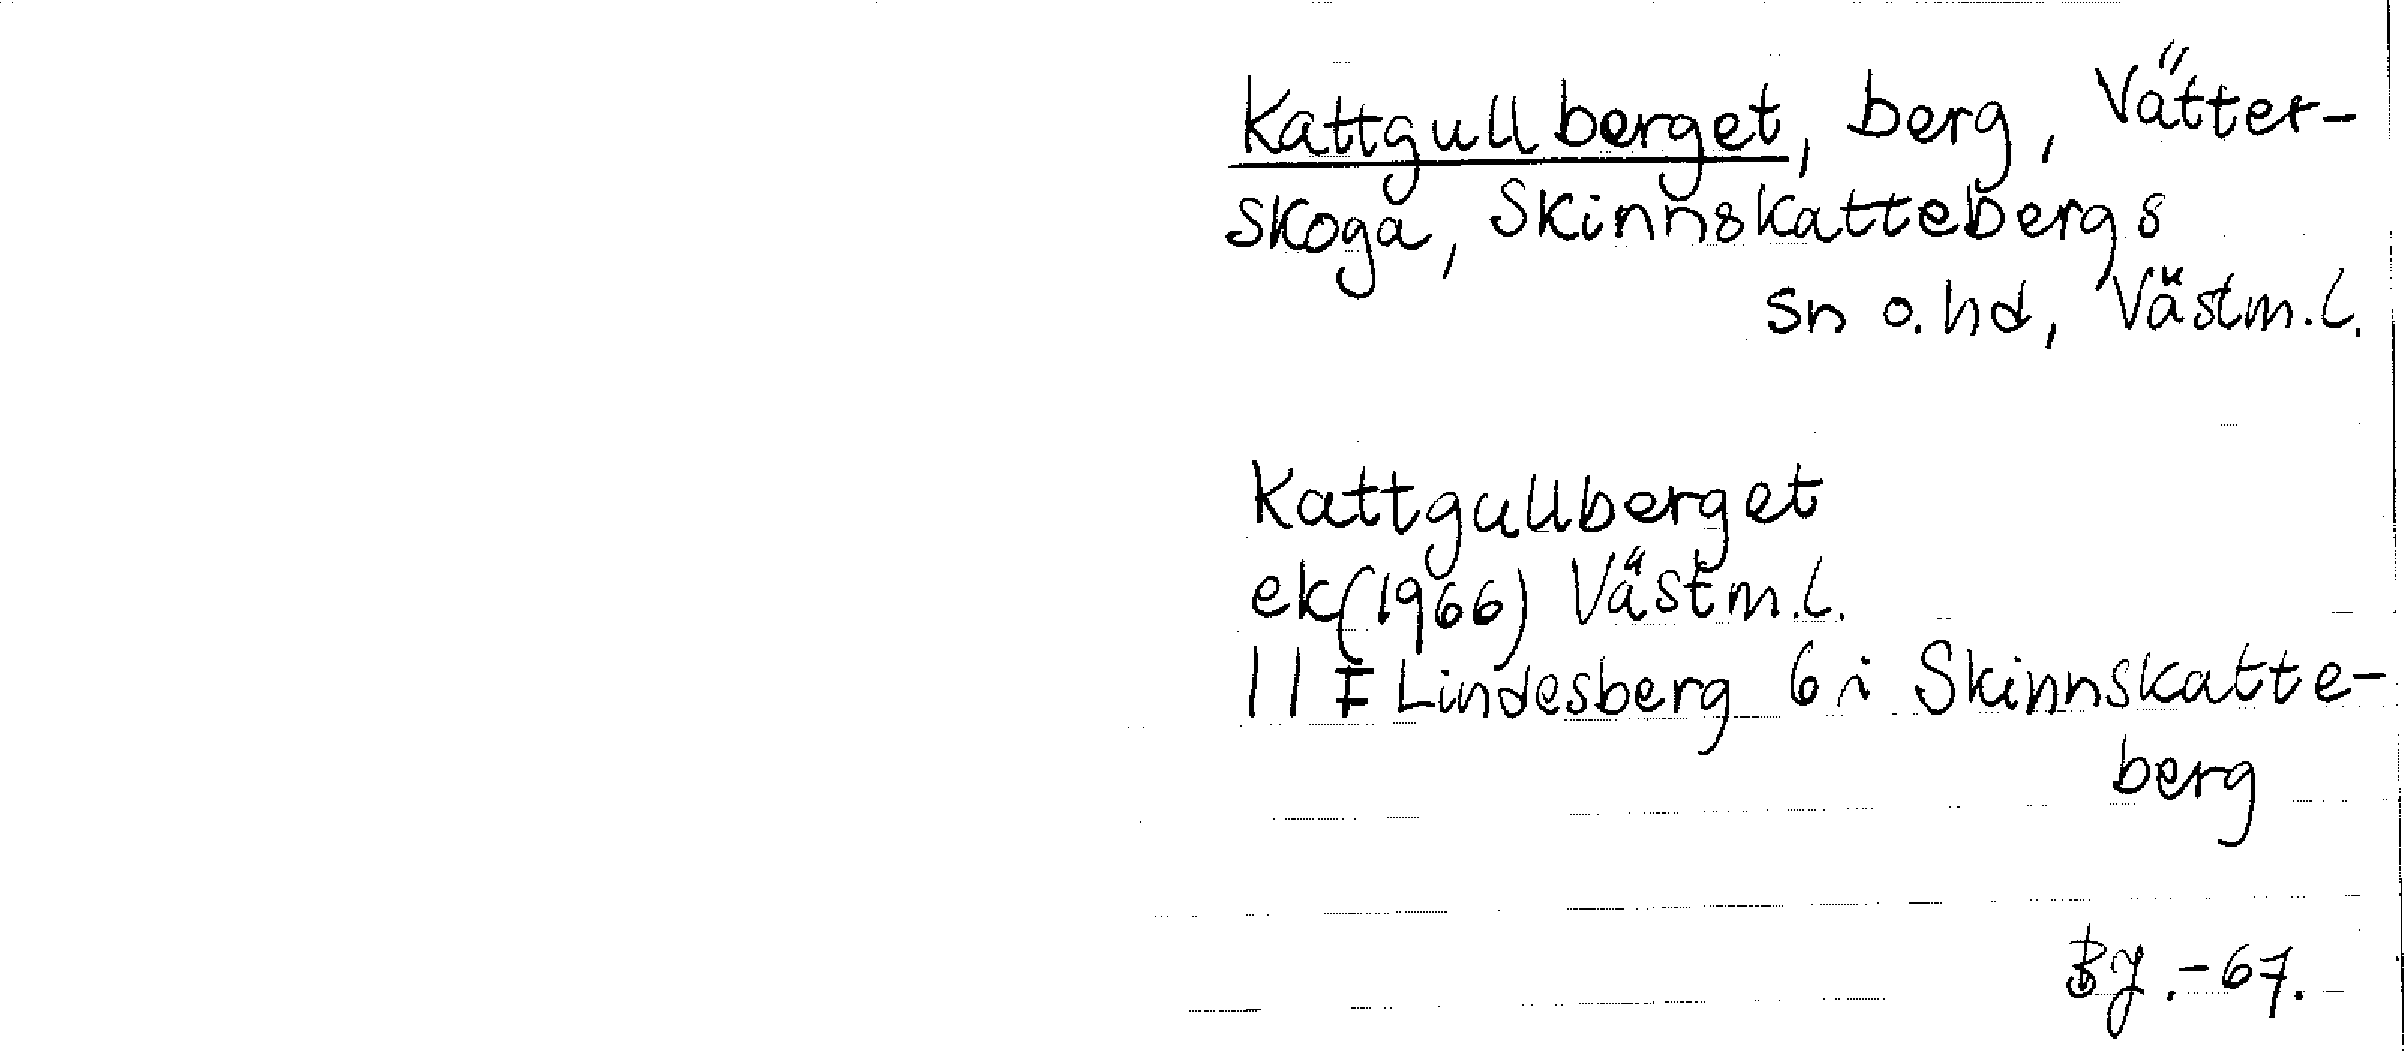 Kattgullberget, berg, Vätter-
skoga, Skinnskattebergs
sn o. hd, Västm. l.
Kattgullberget
ek (1966) Västm. l.
11 F Lindesberg 6 i Skinnskatte-
berg
BJ. -67.